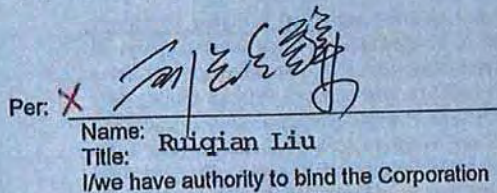 Per: X
Name: Ruiqian Liu
Title:
I/we have authority to bind the Corporation